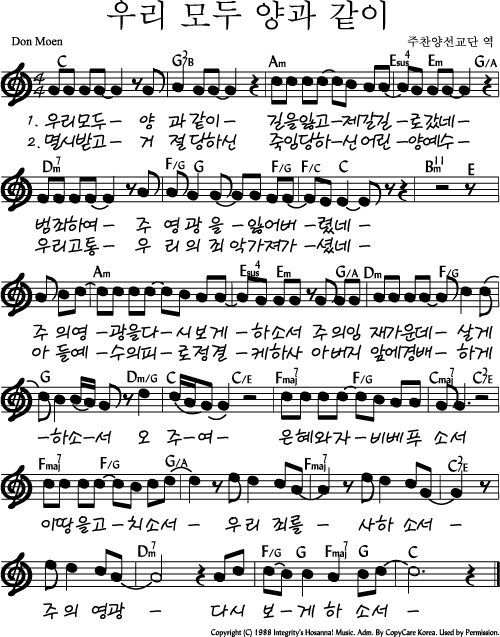 우리 모두 양과 같이
Don Moen
주찬양선교단 역
C G2/B Am Esus4 Em G/A
1. 우리모두- 양 과같이- 길을잃고-제갈길-로갔네-
2. 멸시받고- 거 절당하신 죽임당하-신어린-양예수-
Dm7 F/G G F/G F/C C Bm11 E
범죄하여- 주 영광을 -잃어버-렸네-
우리고통- 우 리의죄악가져가-셨네-
Am Esus4 Em G/A Dm F/G
주 의영-광을다-시보게-하소서 주의임 재가운데- 살게
아 들예-수의피-로정결-케하사 아버지 앞에경배-하게
G Dm/G C C/E Fmaj7 F/G Cmaj7 C2/E
-하소-서 오 주-여- 은혜와자-비베푸 소서
Fmaj7 F/G G/A F Fmaj7 C2/E
이땅을고-치소서- 우리 죄를- 사하 소서-
Dm7 F/G G Fmaj7 G C
주의 영광- 다시 보-게 하 소서-
Copyright (C) 1988 Integrity's Hosanna! Music. Adm. By CopyCare Korea. Used by Permission.